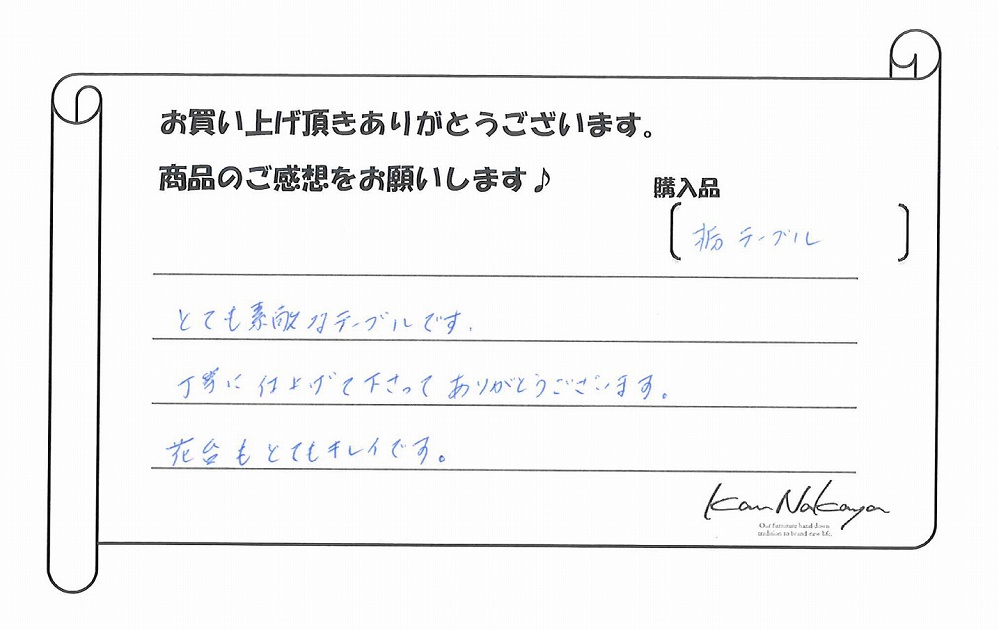 お買い上げ頂きありがとうございます。
商品のご感想をお願いします♪
購入品
栃テーブル
とても素敵なテーブルです.
丁寧に仕上げて下さってありがとうございます。
花台もとてもキレイです。
Kan Nakaya
Our furniture hand down
tradition to brand-new life.